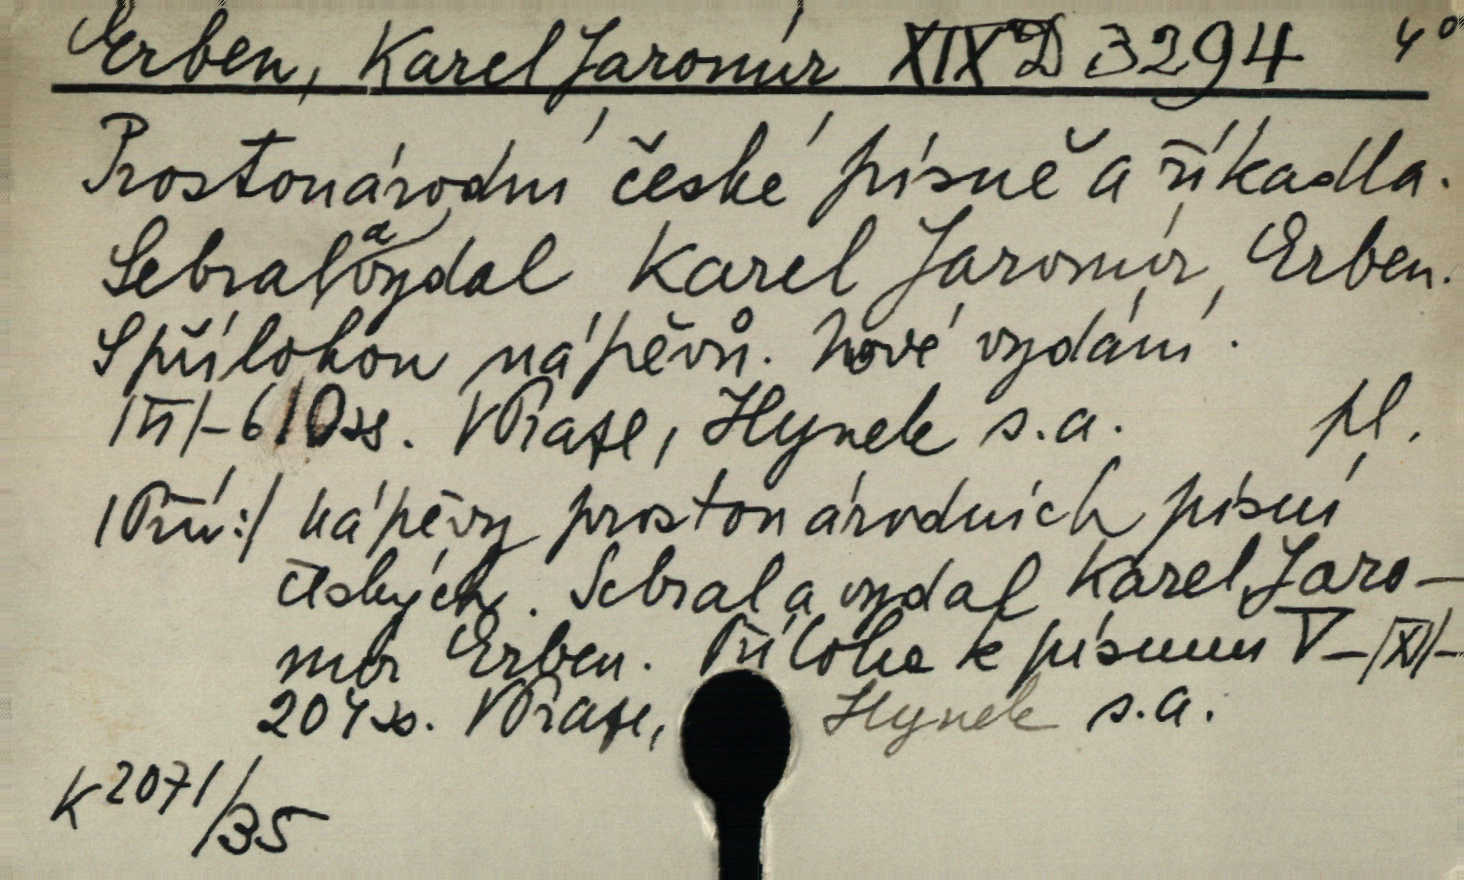 Erben, Karel Jaromír XIX D 3294 4°
Prostonárodní české písně a říkadla.
Sebral a vydal Karel Jaromír Erben.
S přílohou nápěvů. Nové vydání.
/VI/-610 ss. V Praze, Hynek s.a. pl.
/Přív:/ Nápěvy prostonárodních písní
českých. Sebral a vydal Karel Jaro-
mír Erben. Příloha k písmu V-/XI/-
204 ss. V Praze, Hynek s.a.
K 2071/35